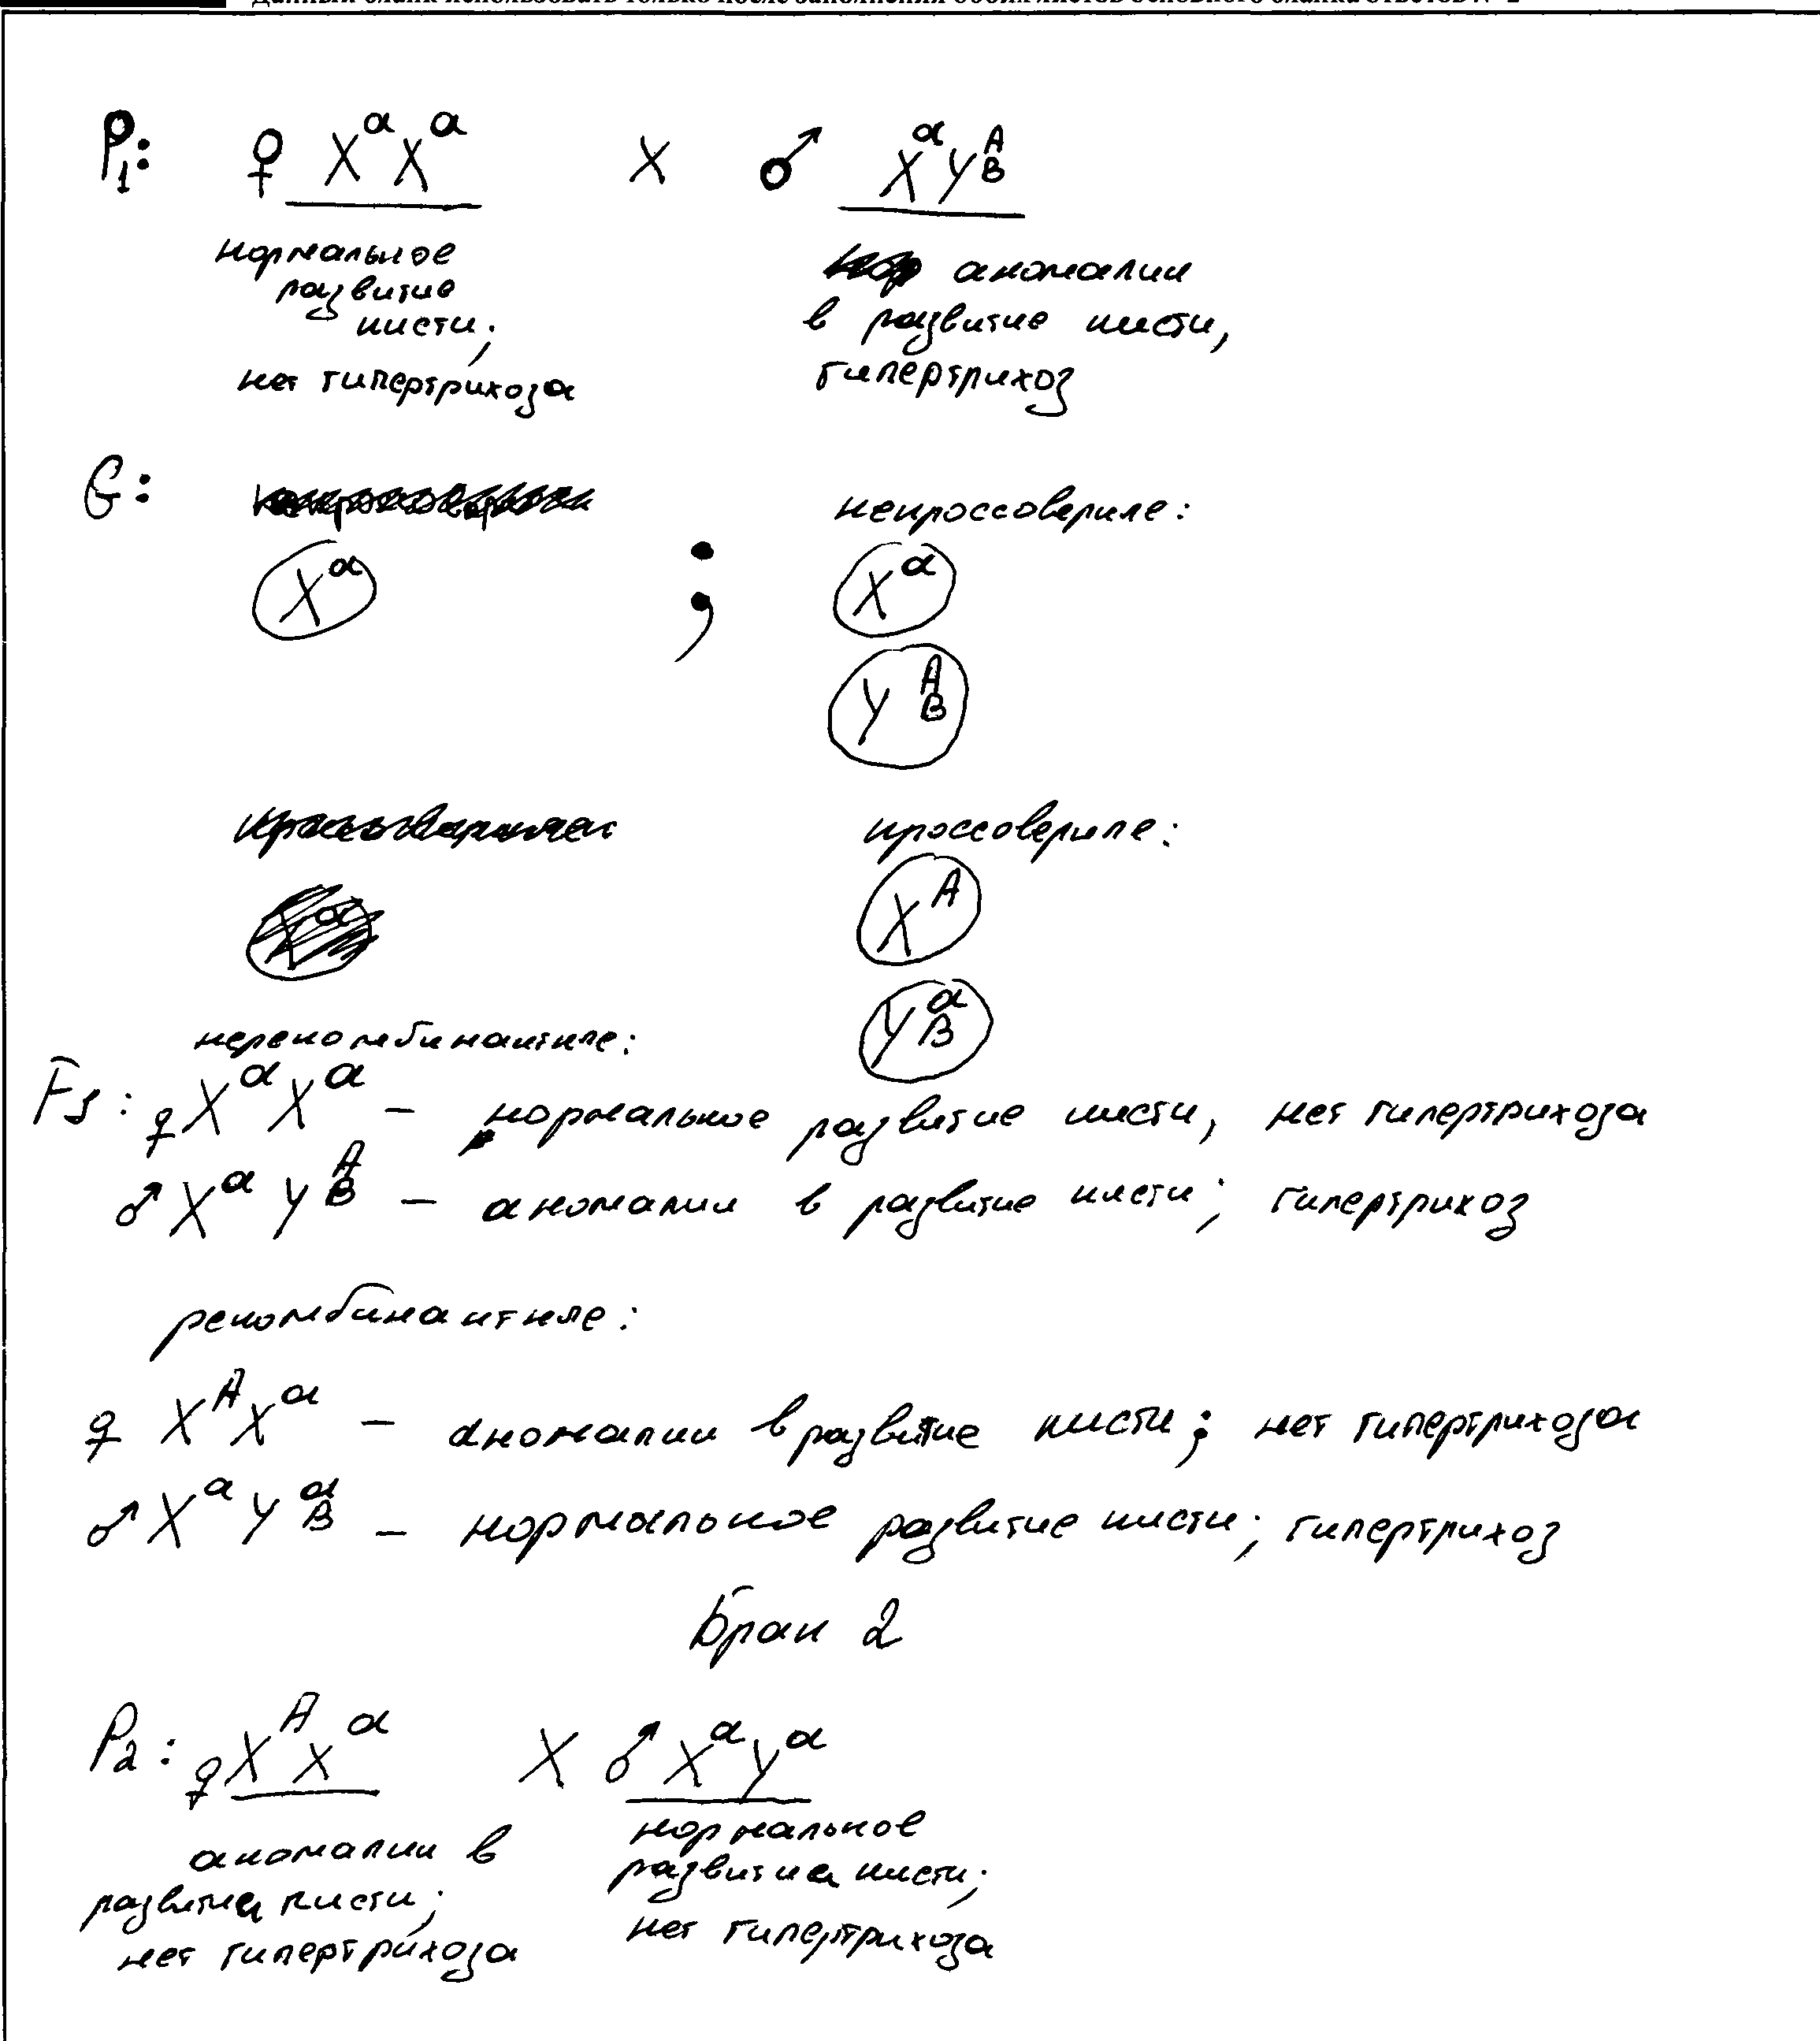 Данный бланк использовать только после заполнения обоих листов основного бланка ответов № 2
P₁: ♀ XᵃXᵃ X ♂ XᵃYᴬ_B
нормальное развитие кисти; нет гипертрихоза
аномалии в развитие кисти, гипертрихоз
G: некроссоверные:
Xᵃ ; Xᵃ
Yᴬ_B
кроссоверные:
Xᴬ
Yᵃ_B
нерекомбинантные:
F₁: ♀ XᵃXᵃ – нормальное развитие кисти, нет гипертрихоза
♂ XᵃYᴬ_B – аномалии в развитие кисти; гипертрихоз
рекомбинантные:
♀ XᴬXᵃ – аномалии в развитие кисти; нет гипертрихоза
♂ XᵃYᵃ_B – нормальное развитие кисти; гипертрихоз
Брак 2
P₂: ♀ XᴬXᵃ X ♂ XᵃYᵃ
аномалии в
развитие кисти;
нет гипертрихоза
нормальное
развитие кисти;
нет гипертрихоза